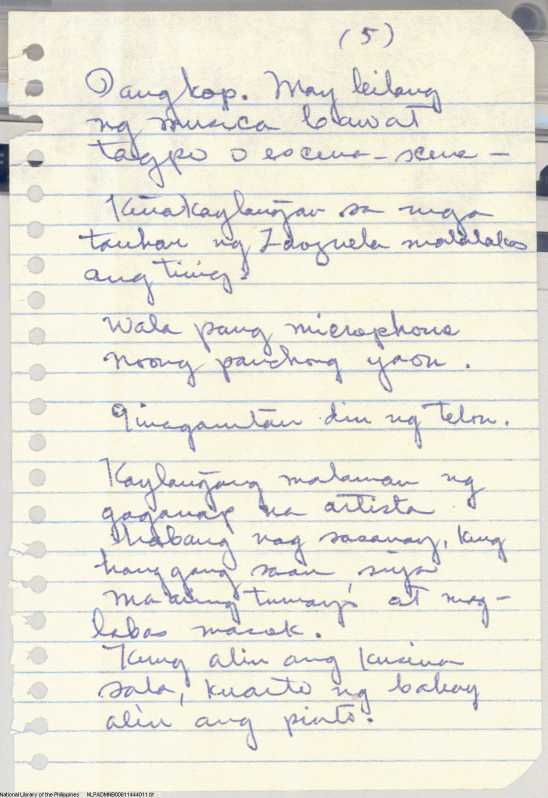 (5)
angkop. May bilang
ng musica bawat
tagpo o escena-scene-
Kinakaylangan sa mga
tauhan ng Zarzuela malalakas
ang tinig.
Wala pang microphone
noong panahong yaon.
Ginagamitan din ng telon.
Kaylangang malaman ng
gaganap na artista
habang nag sasanay, kung
hanggang saan siya
maaring tumayo at mag-
labas masok.
Kung alin ang kusina
sala, kuarto ng bahay
alin ang pinto.
National Library of the Philippines NLPADMNB00611444011.tif